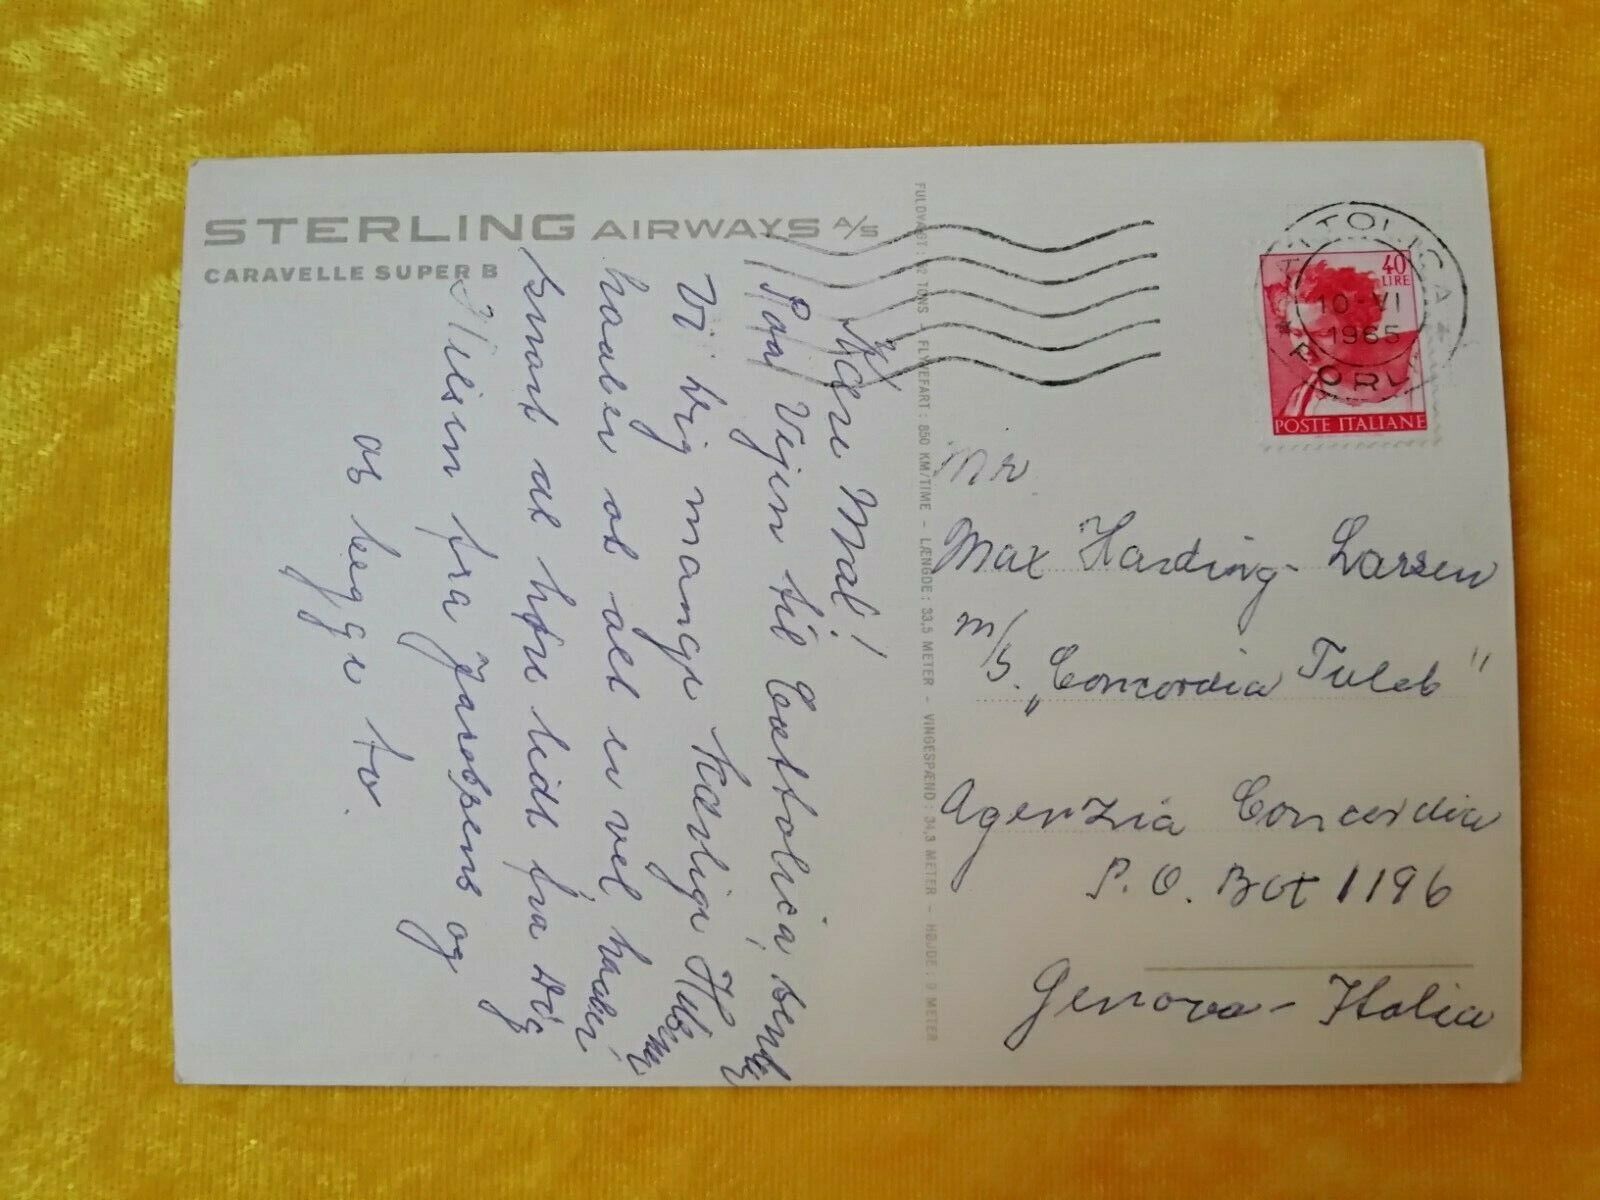 STERLING AIRWAYS A/S
CARAVELLE SUPER B
Kære Mal!
Paa Vejen til Cattolica, sender
Vi Dig mange Kærlige Hilsner
haaber at alt er vel, haaber
snart at høre lidt fra Dig
Hilsen fra Jacobsens og
os begge to.
FULDVÆGT : 52 TONS - FLYVEFART : 850 KM/TIME - LÆNGDE : 33,5 METER - VINGESPÆND : 34,3 METER - HØJDE : 9 METER
CATTOLICA
10-VI
1965
* FORLI *
40
LIRE
POSTE ITALIANE
Mr
Max Harding-Larsen
m/s. „Concordia Taleb"
Agenzia Concordia
P.O. Box 1196
Genova - Italia